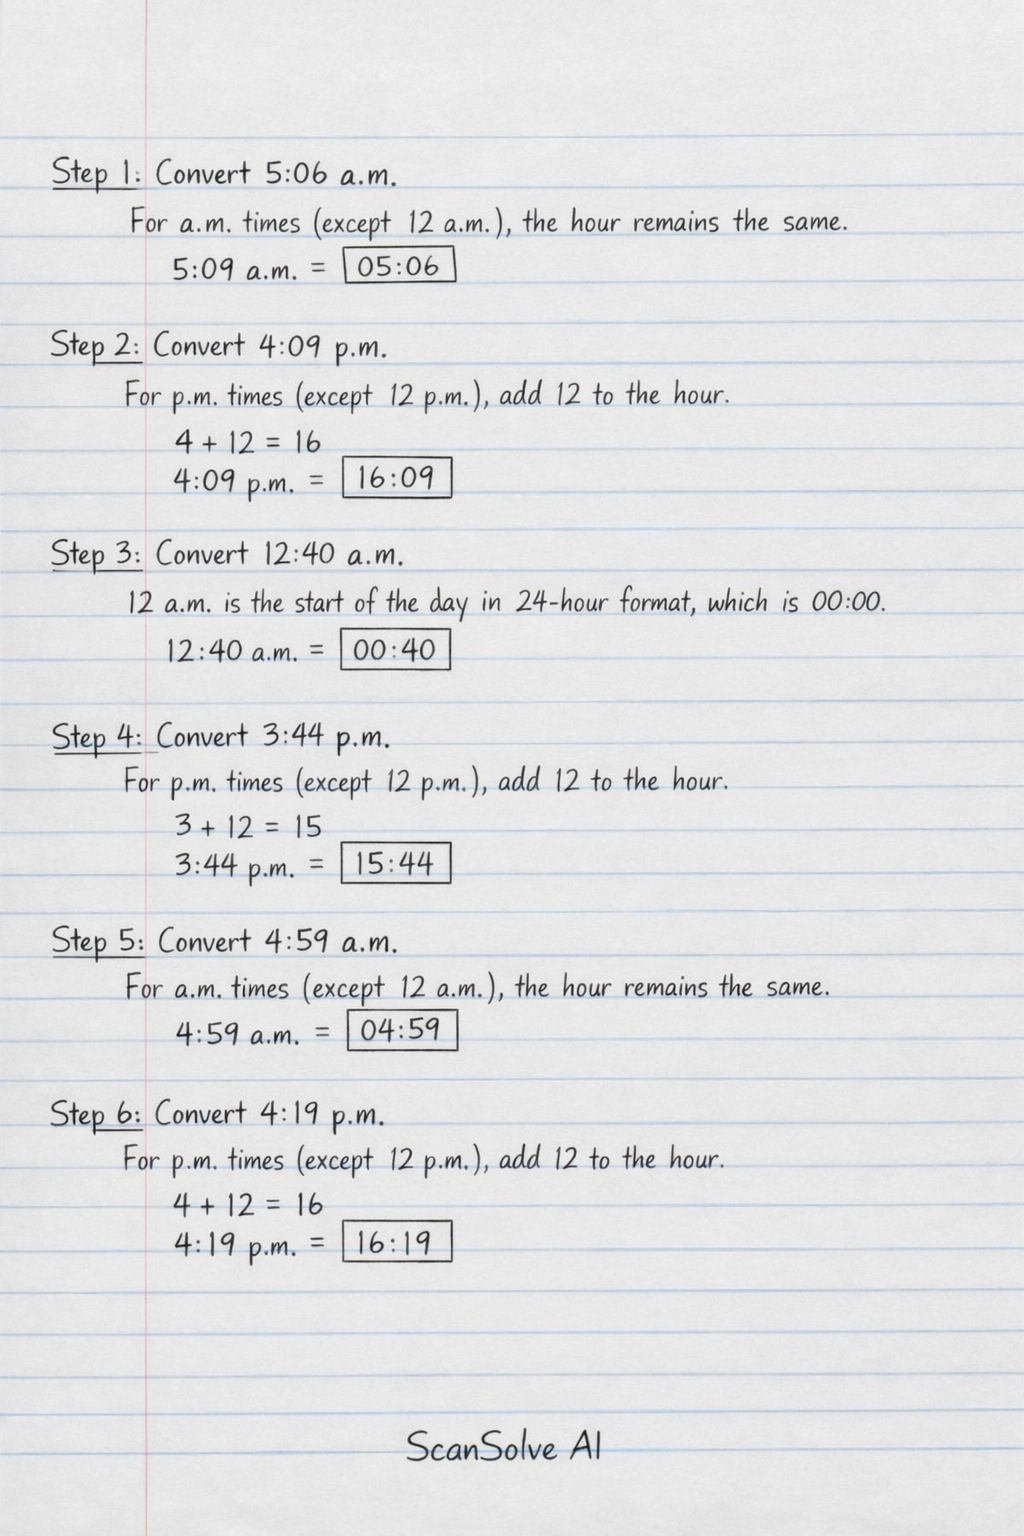 Step 1: Convert 5:06 a.m.
For a.m. times (except 12 a.m.), the hour remains the same.
5:09 a.m. = 05:06
Step 2: Convert 4:09 p.m.
For p.m. times (except 12 p.m.), add 12 to the hour.
4 + 12 = 16
4:09 p.m. = 16:09
Step 3: Convert 12:40 a.m.
12 a.m. is the start of the day in 24-hour format, which is 00:00.
12:40 a.m. = 00:40
Step 4: Convert 3:44 p.m.
For p.m. times (except 12 p.m.), add 12 to the hour.
3 + 12 = 15
3:44 p.m. = 15:44
Step 5: Convert 4:59 a.m.
For a.m. times (except 12 a.m.), the hour remains the same.
4:59 a.m. = 04:59
Step 6: Convert 4:19 p.m.
For p.m. times (except 12 p.m.), add 12 to the hour.
4 + 12 = 16
4:19 p.m. = 16:19
ScanSolve AI